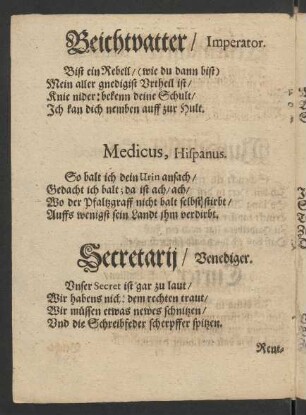 Beichtvatter / Imperator.
Bist ein Rebell / (wie du dann bist)
Mein aller gnedigist Vrtheil ist /
Knie nider: bekenn deine Schult /
Ich kan dich nemben auff zur Hult.
Medicus, Hispanus.
So balt ich dein Urin ansach /
Gedacht ich balt; da ist ach / ach /
Wo der Pfaltzgraff nicht balt selbst stirbt /
Auffs wenigst sein Landt ihm verdirbt.
Secretarij / Venediger.
Vnser Secret ist gar zu laut /
Wir habens nich: dem rechten traut /
Wir müssen etwas newes schnitzen /
Vnd die Schreibfeder scherpffer spitzen.
Rent-